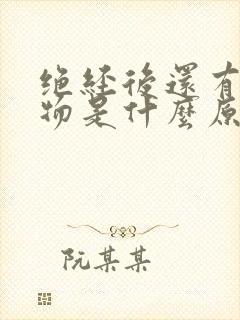 绝经後還有
物是什麼原
阮某某